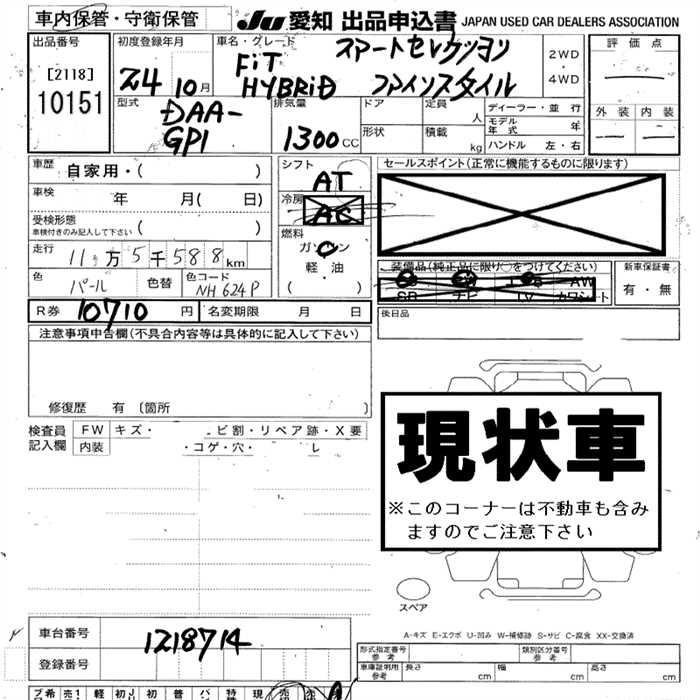 車内保管・守衛保管 JU 愛知 出品申込書 JAPAN USED CAR DEALERS ASSOCIATION
出品番号 初度登録年月 車名・グレード スマートセレクション 2WD ・ 4WD 評価点
[2118] 24 10月 FiT HYBRiD ファインスタイル
10151 型式 DAA-GP1 排気量 1300cc ドア 定員 人 ディーラー・並行 外装 内装
形状 積載 kg モデル年式 年
ハンドル 左・右
車歴 自家用・( ) シフト AT セールスポイント(正常に機能するものに限ります)
車検 年 月( 日) 冷房 AC
受検形態 ( )
車検付きのみ記入して下さい
燃料 ガソリン
走行 11万5千588km 軽・油
装備品(純正品に限り○をつけてください) 新車保証書
色 パール 色替 色コード NH624P ( ) SR ナビ TV カワシート AW 有・無
R券 10710円 名変期限 月 日 後日品
注意事項申告欄(不具合内容等は具体的に記入して下さい)
修復歴 有 〔箇所 〕
現状車
※このコーナーは不動車も含み
ますのでご注意下さい
検査員記入欄 FW キズ・ ビ割・リペア跡・X要
内装 ・コゲ・穴・
スペア
A-キズ E-エクボ U-凹み W-補修跡 S-サビ C-腐食 XX-交換済
車台番号 1218714
登録番号
形式指定番号 参考 類別区分番号 参考
車庫証明用 参考 長さ cm 幅 cm 高さ cm